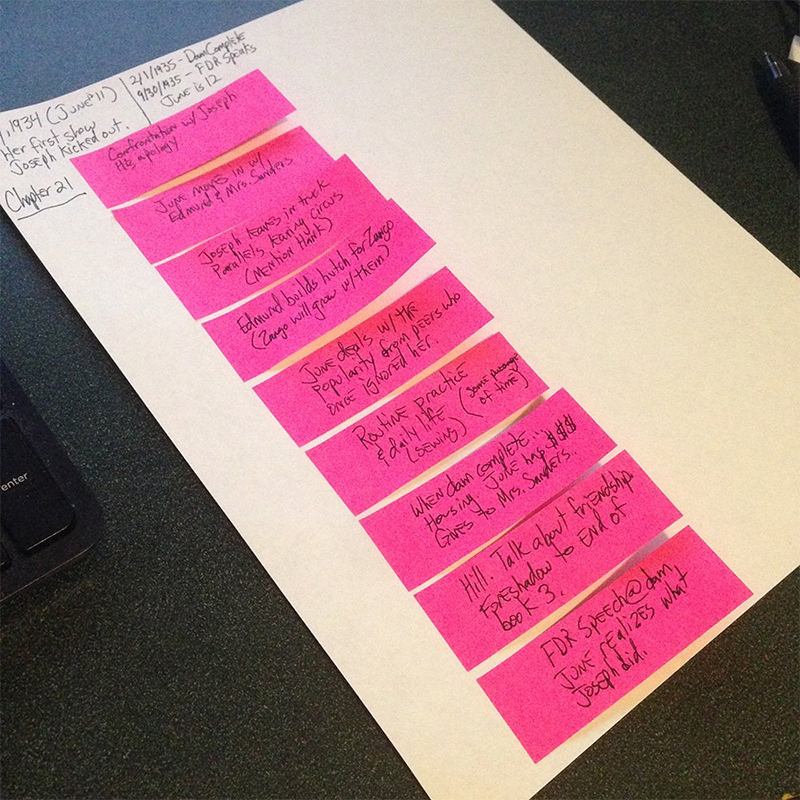 , 1934 (JUNE = 11)
Her first show
Joseph kicked out.
2/1/1935 - Dam Complete
9/30/1935 - FDR Speaks
June is 12
Chapter 21
Confrontation w/ Joseph
His apology
June moves in w/
Edmund & Mrs. Sanders
Joseph leaves in truck
Parallels leaving circus
(MENTION HANK)
Edmund builds hutch for Zango
(Zango will grow w/ them)
June deals w/ the
popularity from peers who
once ignored her.
Routine practice
& daily life
(SEWING)
(some passage
of time)
When dam complete...
Housing June has $$$$
Gives to Mrs. Sanders.
Hill. Talk about friendship
Foreshadow to end of
book 3.
FDR Speech @ dam
June realizes what
Joseph did.
enter